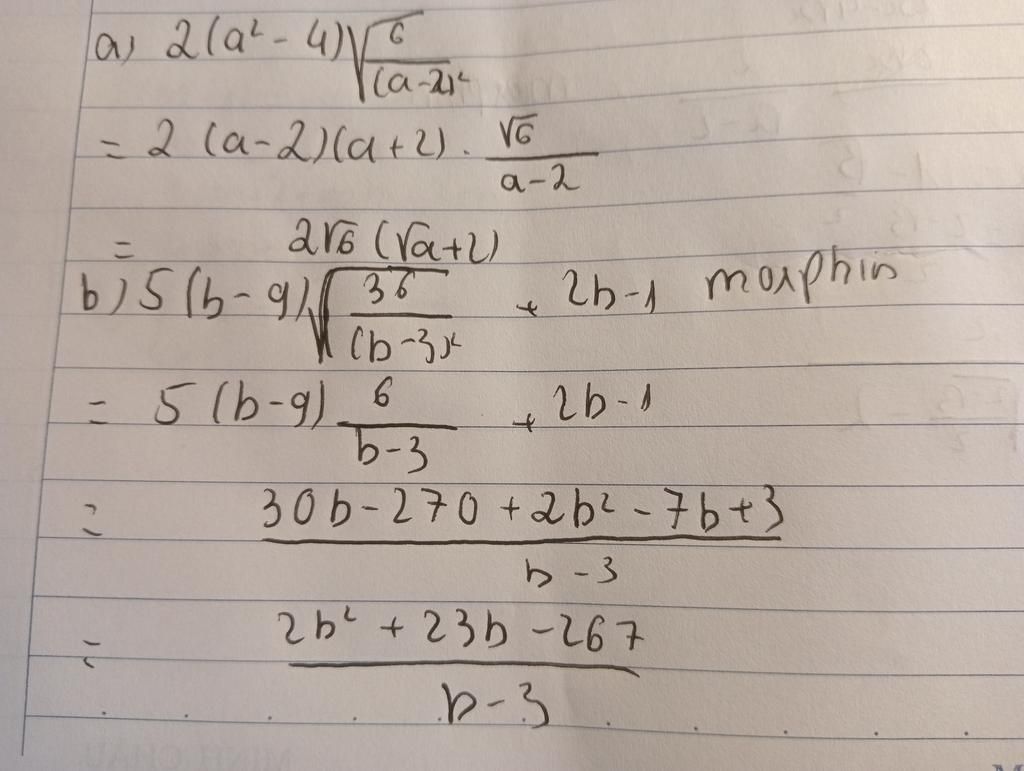 a) 2(a² - 4)√(6/(a-2)²)
= 2 (a-2)(a+2) . √6/(a-2)
= 2√6 (√a+2)
b) 5(b-9)√(36/(b-3)²) + 2b-1 morphin
= 5 (b-9) 6/(b-3) + 2b-1
= (30b-270+2b²-7b+3)/(b-3)
= (2b² + 23b - 267)/(b-3)